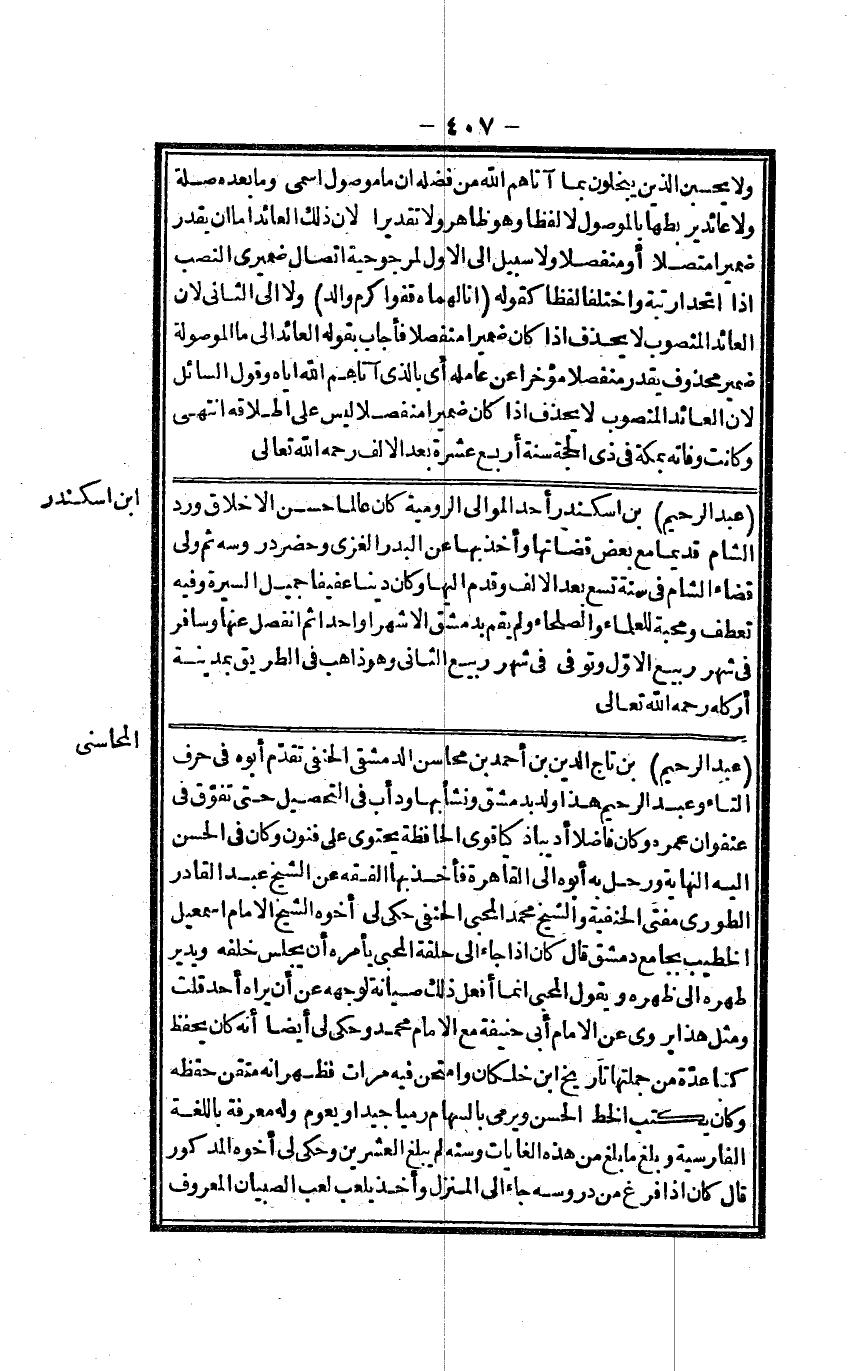 - ٤٠٧ -
ولا يحسبن الذين يبخلون بما آتاهم الله من فضله ان ما موصول اسمى وما بعده صلة
ولا عائد يربطها بالموصول لا لفظا وهو ظاهر ولا تقديرا لان ذلك العائد اما ان يقدر
ضميرا متصلا أو منفصلا ولا سبيل الى الاول لمرجوحية اتصال ضميرى النصب
اذا اتحدا رتبة واختلفا لفظا كقوله (انالهماه قفوا كرم والد) ولا الى الثانى لان
العائد المنصوب لا يحذف اذا كان ضميرا منفصلا فأجاب بقوله العائد الى ما الموصولة
ضمير محذوف يقدر منفصلا مؤخرا عن عامله أى بالذى آتاهم الله اياه وقول السائل
لان العائد المنصوب لا يحذف اذا كان ضميرا منفصلا ليس على اطلاقه انتهى
وكانت وفاته بمكة فى ذى الحجة سنة أربع عشرة بعد الالف رحمه الله تعالى
ابن اسكندر
(عبد الرحيم) بن اسكندر أحد الموالى الرومية كان عالما حسن الاخلاق ورد
الشام قديما مع بعض قضاتها وأخذ بها عن البدر الغزى وحضر دروسه ثم ولى
قضاء الشام فى سنة تسع بعد الالف وقدم اليها وكان دينا عفيفا جميل السيرة وفيه
تعطف ومحبة للعلماء والصلحاء ولم يقم بدمشق الا شهرا واحدا ثم انفصل عنها وسافر
فى شهر ربيع الاوّل وتوفى فى شهر ربيع الثانى وهو ذاهب فى الطريق بمدينة
أركله رحمه الله تعالى
المحاسنى
(عبد الرحيم) بن تاج الدين بن أحمد بن محاسن الدمشقى الحنفى تقدّم أبوه فى حرف
التاء وعبد الرحيم هذا ولد بدمشق ونشأ بها ودأب فى التحصيل حتى تفوّق فى
عنفوان عمره وكان فاضلا أديبا ذكيا قوى الحافظة يحتوى على فنون وكان فى الحسن
اليه النهاية ورحل به أبوه الى القاهرة فأخذ بها الفقه عن الشيخ عبد القادر
الطورى مفتى الحنفية والشيخ محمد المحبى الحنفى حكى لى أخوه الشيخ الامام اسمعيل
الخطيب بجامع دمشق قال كان اذا جاء الى حلقة المحبى يأمره أن يجلس خلفه ويدير
ظهره الى ظهره ويقول المحبى انما أفعل ذلك صيانة لوجهه عن أن يراه أحد قلت
ومثل هذا يروى عن الامام أبى حنيفة مع الامام محمد وحكى لى أيضا أنه كان يحفظ
كتبا عدّة من جملتها تاريخ ابن خلكان وامتحن فيه مرات فظهر انه متقن حفظه
وكان يكتب الخط الحسن ويرمى بالسهام رميا جيدا ويعوم وله معرفة باللغة
الفارسية وبلغ ما بلغ من هذه الغايات وسنه لم يبلغ العشرين وحكى لى أخوه المذكور
قال كان اذا فرغ من دروسه جاء الى المنزل وأخذ يلعب لعب الصبيان المعروف